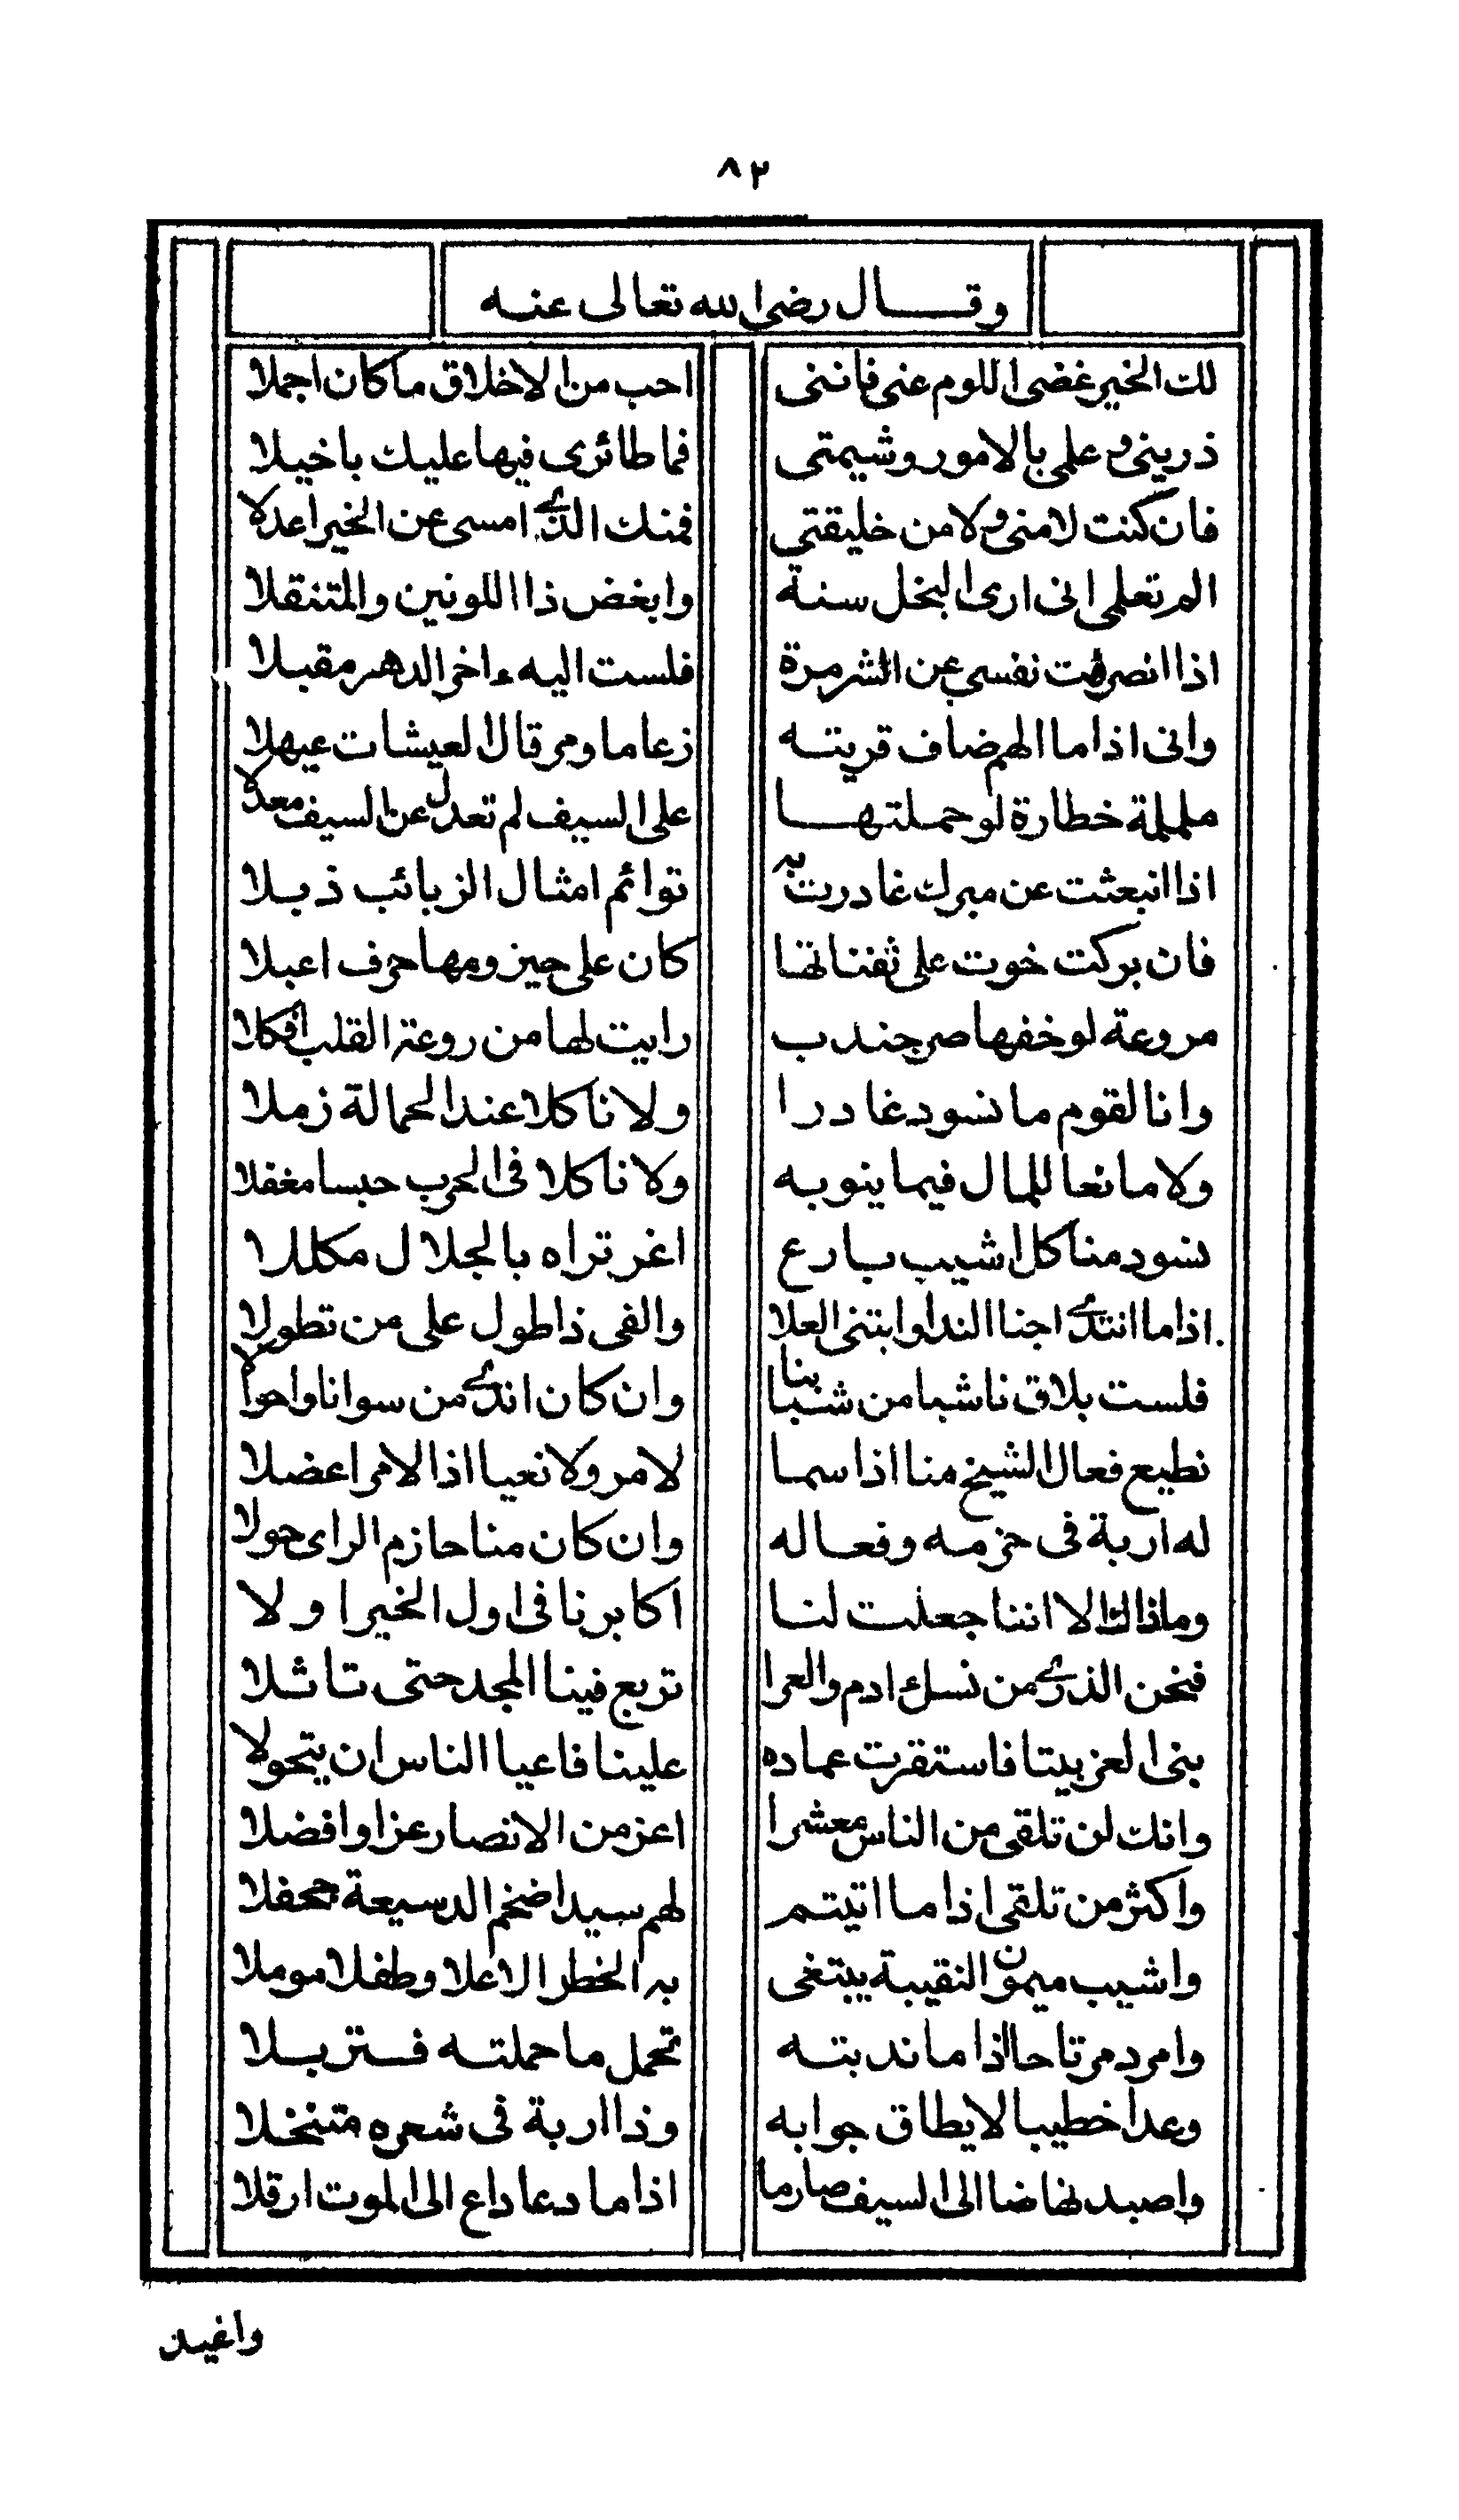 ٨٢
وقال رضى الله تعالى عنه
لك الخير غضى اللوم عنى فاننى احب من الاخلاق ما كان اجملا
ذرينى وعلمى بالامور وشيمتى فما طائرى فيها عليك باخيلا
فان كنت لا منى ولا من خليقتى فمنك الذى امسى عن الخير اعدلا
الم تعلمى انى ارى البخل سنة وابغض ذا اللونين والمتنقلا
اذا انصرفت نفسى عن الشر مرة فلست اليه ءاخر الدهر مقبلا
وانى اذا ما الهم ضاف قريته زعاما ومرقال العيشات عيهلا
ململمة خطارة لو حملتها على السيف لم تعدل عن السيف معدلا
اذا انبعثت عن مبرك غادرت به توائم امثال الزبائب ذبلا
فان بركت خوت على ثفناتها كان على حيزومها حرف اعبلا
مروعة لو خفها صر جندب رايت لها من روعة القلب افكلا
وانا لقوم ما نسود غادرا ولا ناكلا عند الحمالة زملا
ولا مانعا للمال فيما ينوبه ولا ناكلا فى الحرب جبسا مغفلا
نسود منا كل اشيب بارع اغر تراه بالجلال مكللا
اذا ما انتدى اجنا الندا وابتنى العلا والفى ذا طول على من تطولا
فلست بلاق ناشبا من شبابنا وان كان اندى من سوانا واحولا
نطيع فعال الشيخ منا اذا سما لامر ولا نعيا اذا الامر اعضلا
له اربة فى حزمه وفعاله وان كان منا حازم الراى حولا
وما ذاك الا اننا جعلت لنا اكابرنا فى اول الخير اولا
فنحن الذرى من نسل ادم والعرا تربع فينا المجد حتى تاثلا
بنى العز بيتا فاستقرت عماده علينا فاعيا الناس ان يتحولا
وانك لن تلقى من الناس معشرا اعز من الانصار عزا وافضلا
واكثر من تلقى اذا ما اتيتم لهم سيدا ضخم الدسيعة جحفلا
واشيب ميمون النقيبة يبتغى به الخطر الاعلا وطفلا موملا
وامرد مرتاحا اذا ما ندبته تحمل ما حملته فتربلا
وعدا خطيبا لا يطاق جوابه وذا اربة فى شعره متنخلا
واصيد نهاضا الى السيف صارما اذا ما دعا داع الى الموت ارقلا
واغيد